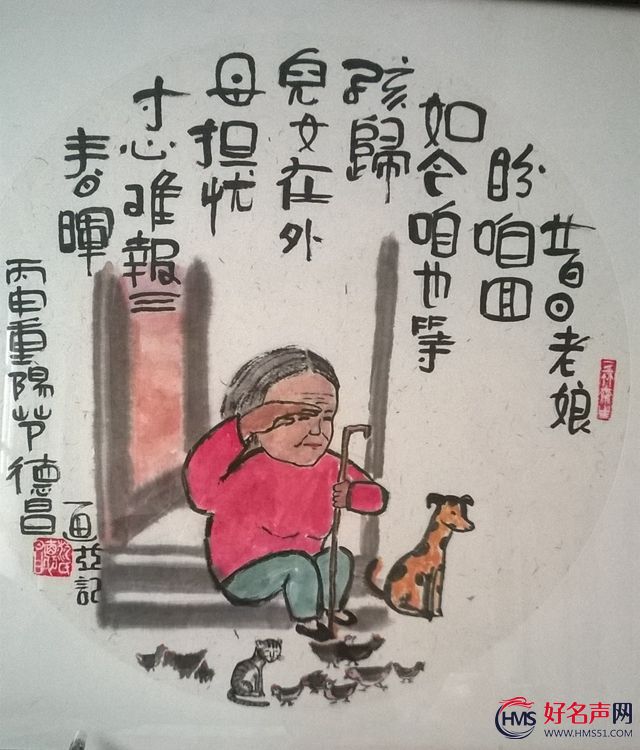 昔日老娘
盼咱回
如今咱也等
孩歸
兒女在外
母担忧
寸心难報三
春暉
丙申重陽节德昌
画並記
HMS
好名声网
WWW.HMS51.COM